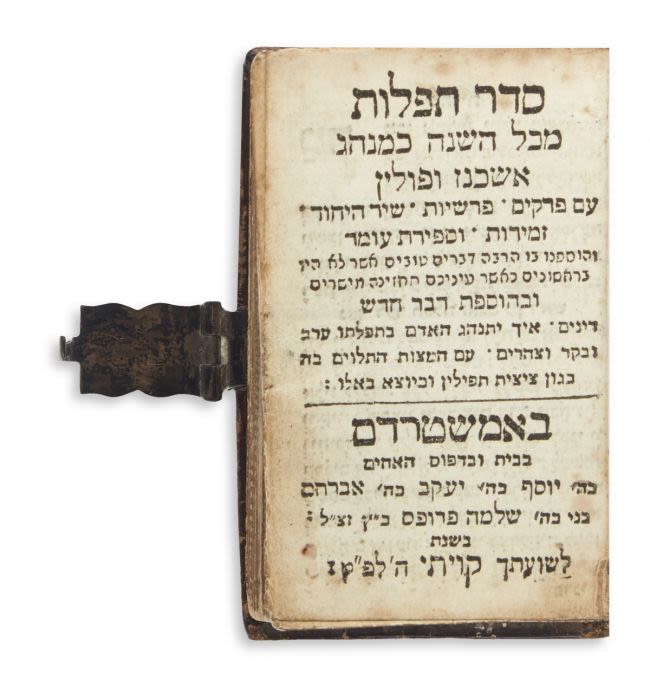 סדר תפלות
מכל השנה כמנהג
אשכנז ופולין
עם פרקים ׳ פרשיות ׳ שיר היחוד ׳
זמירות ׳ וספירת עומר
והוספנו בו הרבה דברים טובים אשר לא היו
בראשונים כאשר עיניכם תחזינה מישרים
ובהוספת דבר חדש
דינים ׳ איך יתנהג האדם בתפלתו ערב
ובקר וצהרים ׳ עם המצות התלוים בה
כגון ציצית תפילין וכיוצא באלו :
באמשטרדם
בבית ובדפוס האחים
כה׳ יוסף כה׳ יעקב כה׳ אברהם
בני כה׳ שלמה פרופס כ״ץ זצ״ל :
בשנת
לשועתך קויתי ה׳ לפ״ק :